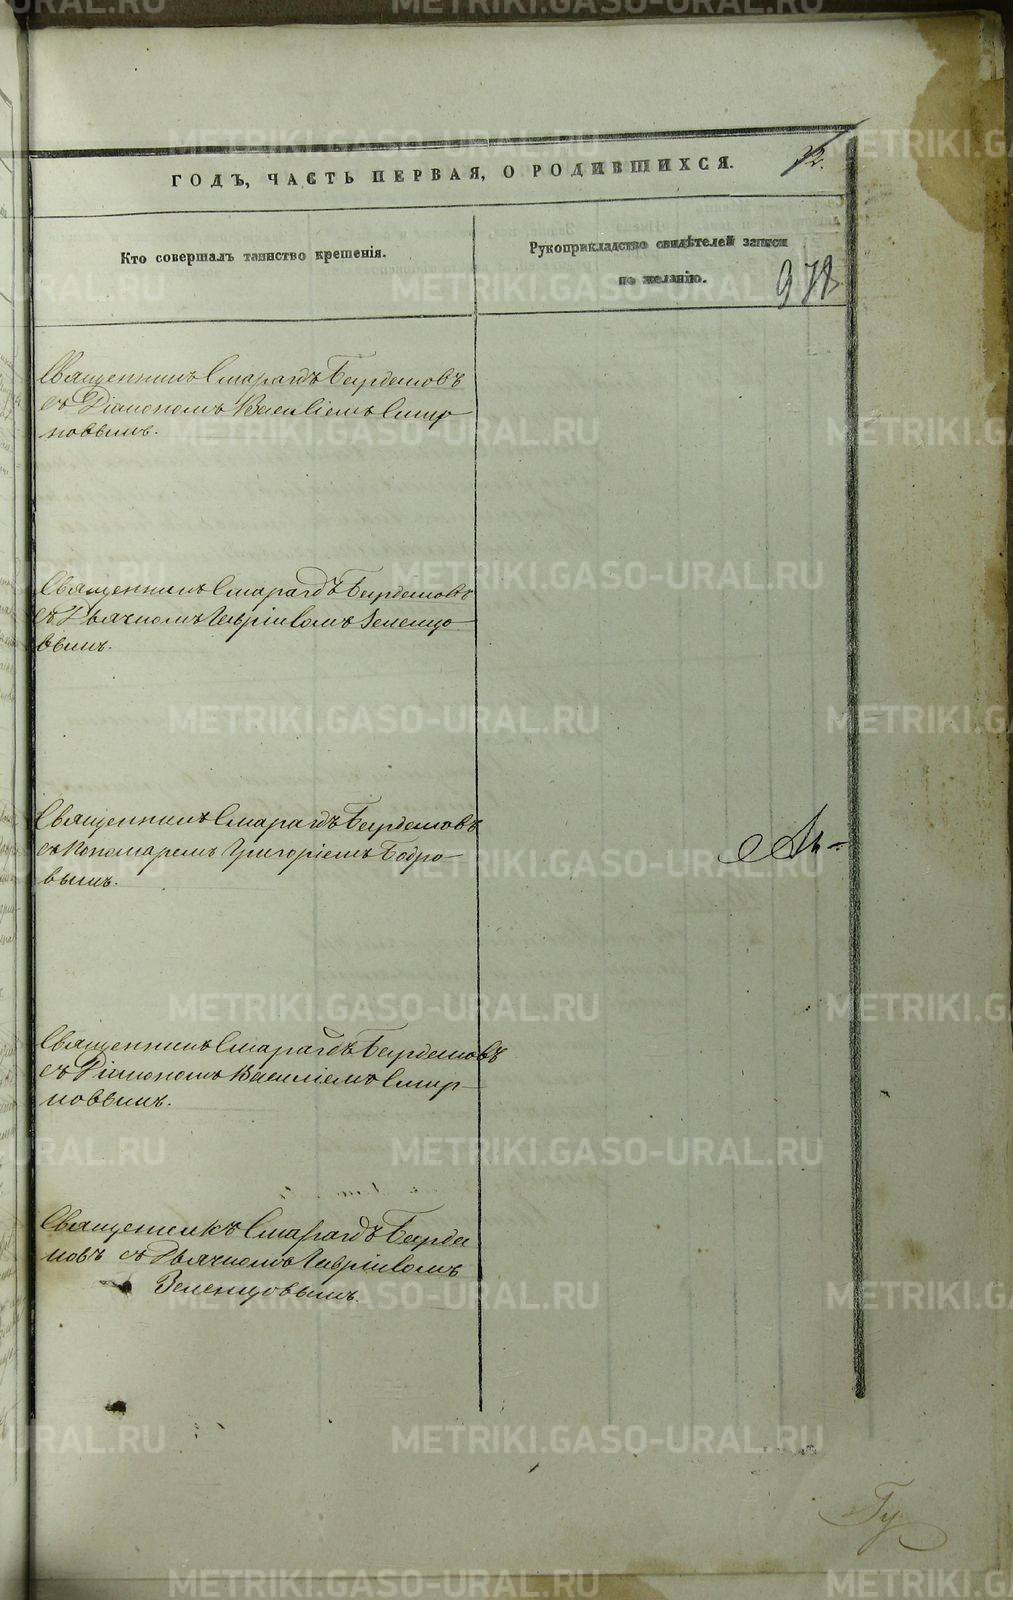 ГОДЪ, ЧАСТЬ ПЕРВАЯ, О РОДИВШИХСЯ.
12.
Кто совершалъ таинство крещенія.
Рукоприкладство свидѣтелей записи
по желанію.
978
Священникъ Смарагдъ Бирдемовъ
съ Діакономъ Василіемъ Смир
новымъ.
Священникъ Смарагдъ Бирдемовъ
съ Дьячкомъ Гавріиломъ Зеленцо
вымъ.
Священникъ Смарагдъ Бирдемовъ
съ Пономаремъ Григоріемъ Бобро
вымъ.
Священникъ Смарагдъ Бирдемовъ
съ Діакономъ Василіемъ Смир
новымъ.
Священникъ Смарагдъ
съ Дьячкомъ Гавріиломъ
Зеленцовымъ.
METRIKI.GASO-URAL.RU